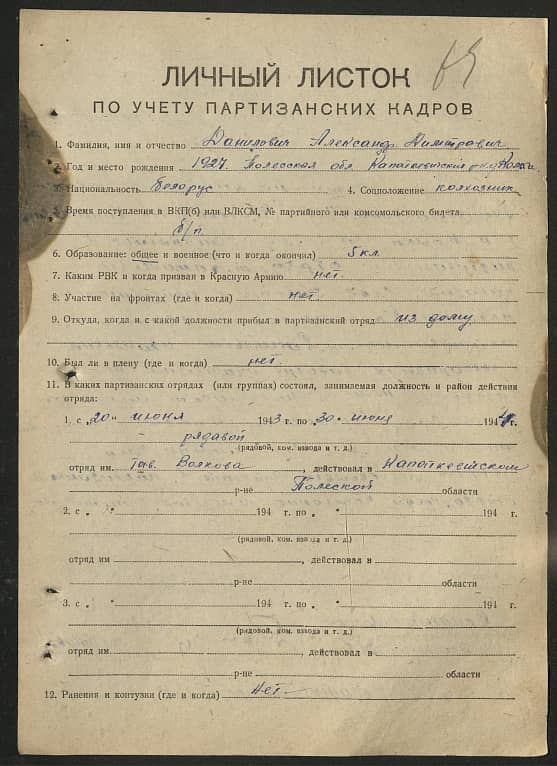 69
ЛИЧНЫЙ ЛИСТОК
ПО УЧЕТУ ПАРТИЗАНСКИХ КАДРОВ
1. Фамилия, имя и отчество Данилович Александр Димитравич
2. Год и место рождения 1927. Полесская обл. Капаткевичский р-н
3. Национальность белорус 4. Соцположение колхозник
5. Время поступления в ВКП(б) или ВЛКСМ, № партийного или комсомольского билета
б/п
6. Образование: общее и военное (что и когда окончил) 5 кл.
7. Каким РВК и когда призван в Красную Армию нет.
8. Участие на фронтах (где и когда) нет.
9. Откуда, когда и с какой должности прибыл в партизанский отряд из дому
10. Был ли в плену (где и когда) нет.
11. В каких партизанских отрядах (или группах) состоял, занимаемая должность и район действия
отряда:
1. с „20" июня 1943 г. по „30" июня 1944 г.
рядавой
(рядовой, ком. взвода и т. д.)
отряд им. тав. Волкова, действовал в Капаткевитском
р-не Полеской области
2. с „ " 194 г. по „ " 194 г.
(рядовой, ком. взвода и т. д.)
отряд им., действовал в
р-не области
3. с „ " 194 г. по „ " 194 г.
(рядовой, ком. взвода и т. д.)
отряд им., действовал в
р-не области
12. Ранения и контузии (где и когда) Нет